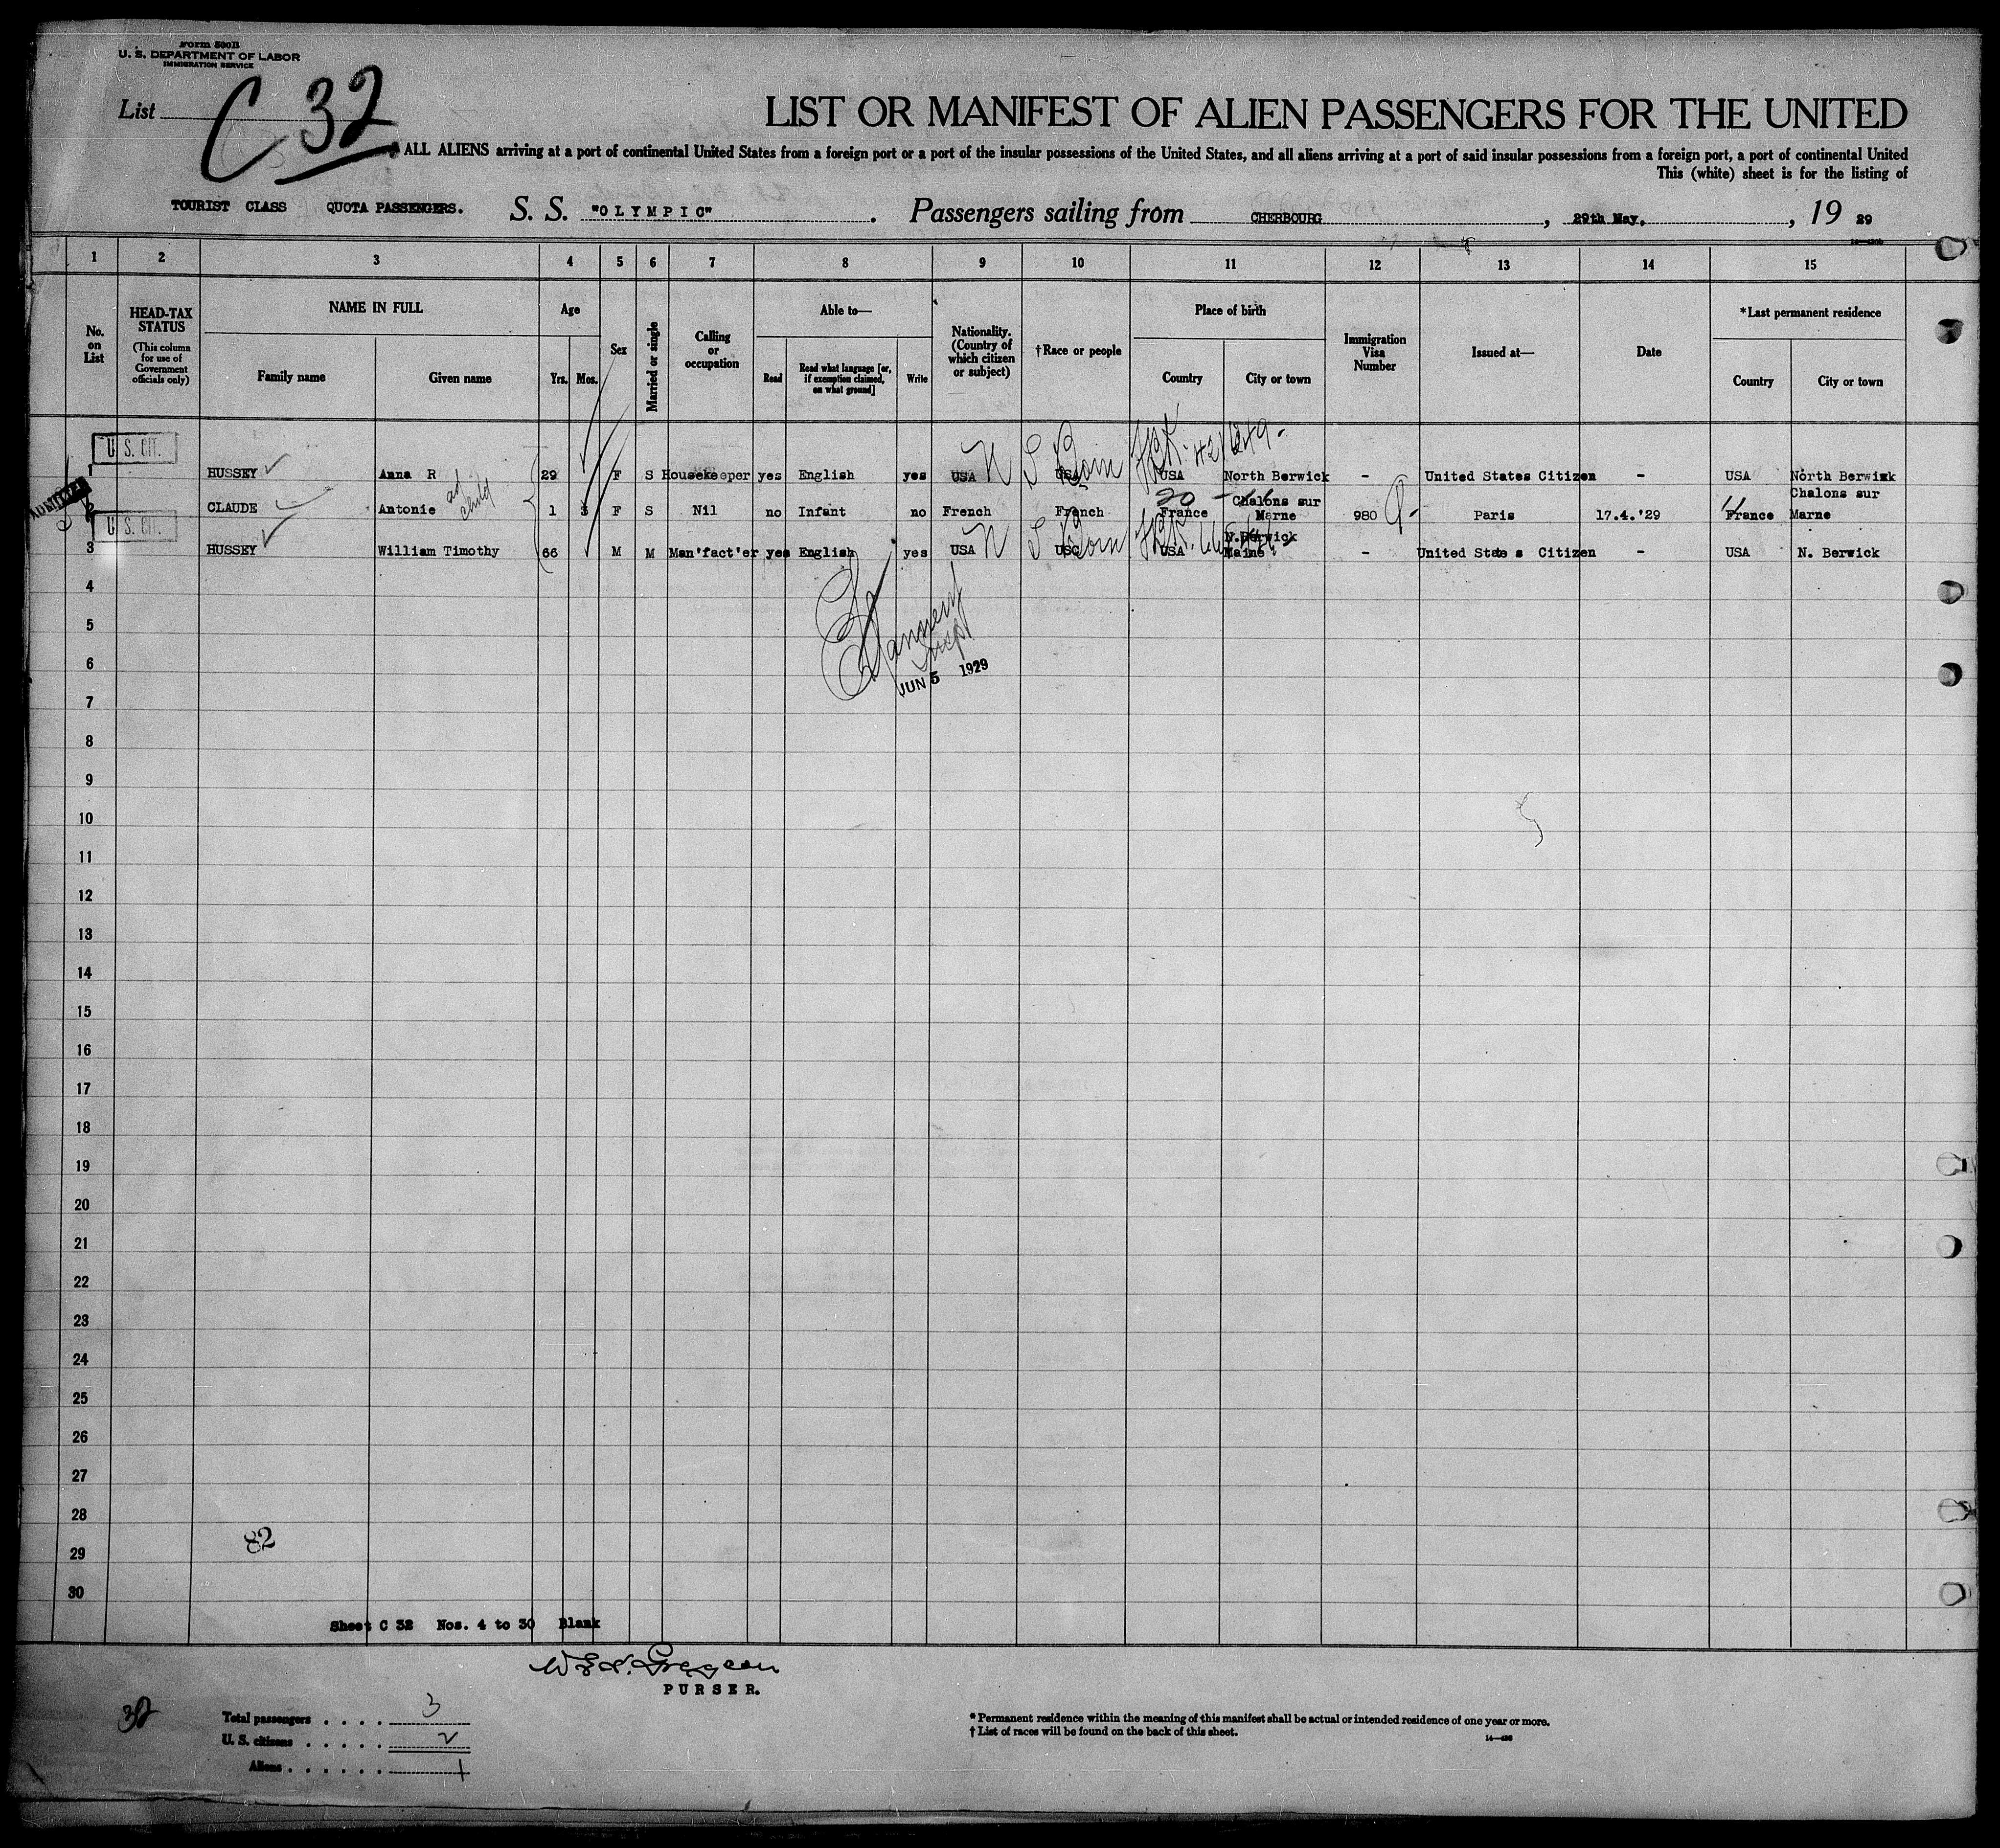 Form 500B
U. S. DEPARTMENT OF LABOR
IMMIGRATION SERVICE
List C 32
LIST OR MANIFEST OF ALIEN PASSENGERS FOR THE UNITED
ALL ALIENS arriving at a port of continental United States from a foreign port or a port of the insular possessions of the United States, and all aliens arriving at a port of said insular possessions from a foreign port, a port of continental United
This (white) sheet is for the listing of
TOURIST CLASS QUOTA PASSENGERS. S. S. "OLYMPIC". Passengers sailing from CHERBOURG, 29th May, 19 29
1 2 3 4 5 6 7 8 9 10 11 12 13 14 15
No. on List
HEAD-TAX STATUS
(This column for use of Government officials only)
NAME IN FULL
Family name Given name
Age
Yrs. Mos.
Sex
Married or single
Calling or occupation
Able to—
Read
Read what language [or, if exemption claimed, on what ground]
Write
Nationality. (Country of which citizen or subject)
†Race or people
Place of birth
Country City or town
Immigration Visa Number
Issued at—
Date
*Last permanent residence
Country City or town
U. S. CIT.
1 HUSSEY Anna R 29 F S Housekeeper yes English yes USA USA North Berwick - United States Citizen - USA North Berwick
ADMITTED
CLAUDE Antonie ad child 1 3 F S Nil no Infant no French French 20 France Chalons sur Marne 980 Paris 17.4.'29 France Chalons sur Marne
U. S. CIT.
3 HUSSEY William Timothy 66 M M Man'fact'er yes English yes USA N S Born USA N.Berwick Maine - United States Citizen - USA N. Berwick
4
5
6
JUN 5 1929
7
8
9
10
11
12
13
14
15
16
17
18
19
20
21
22
23
24
25
26
27
28
82
29
30
Sheet C 32 Nos. 4 to 30 Blank
PURSER.
32
Total passengers . . . . 3
U. S. citizens . . . . . 2
Aliens . . . . . . 1
* Permanent residence within the meaning of this manifest shall be actual or intended residence of one year or more.
† List of races will be found on the back of this sheet.